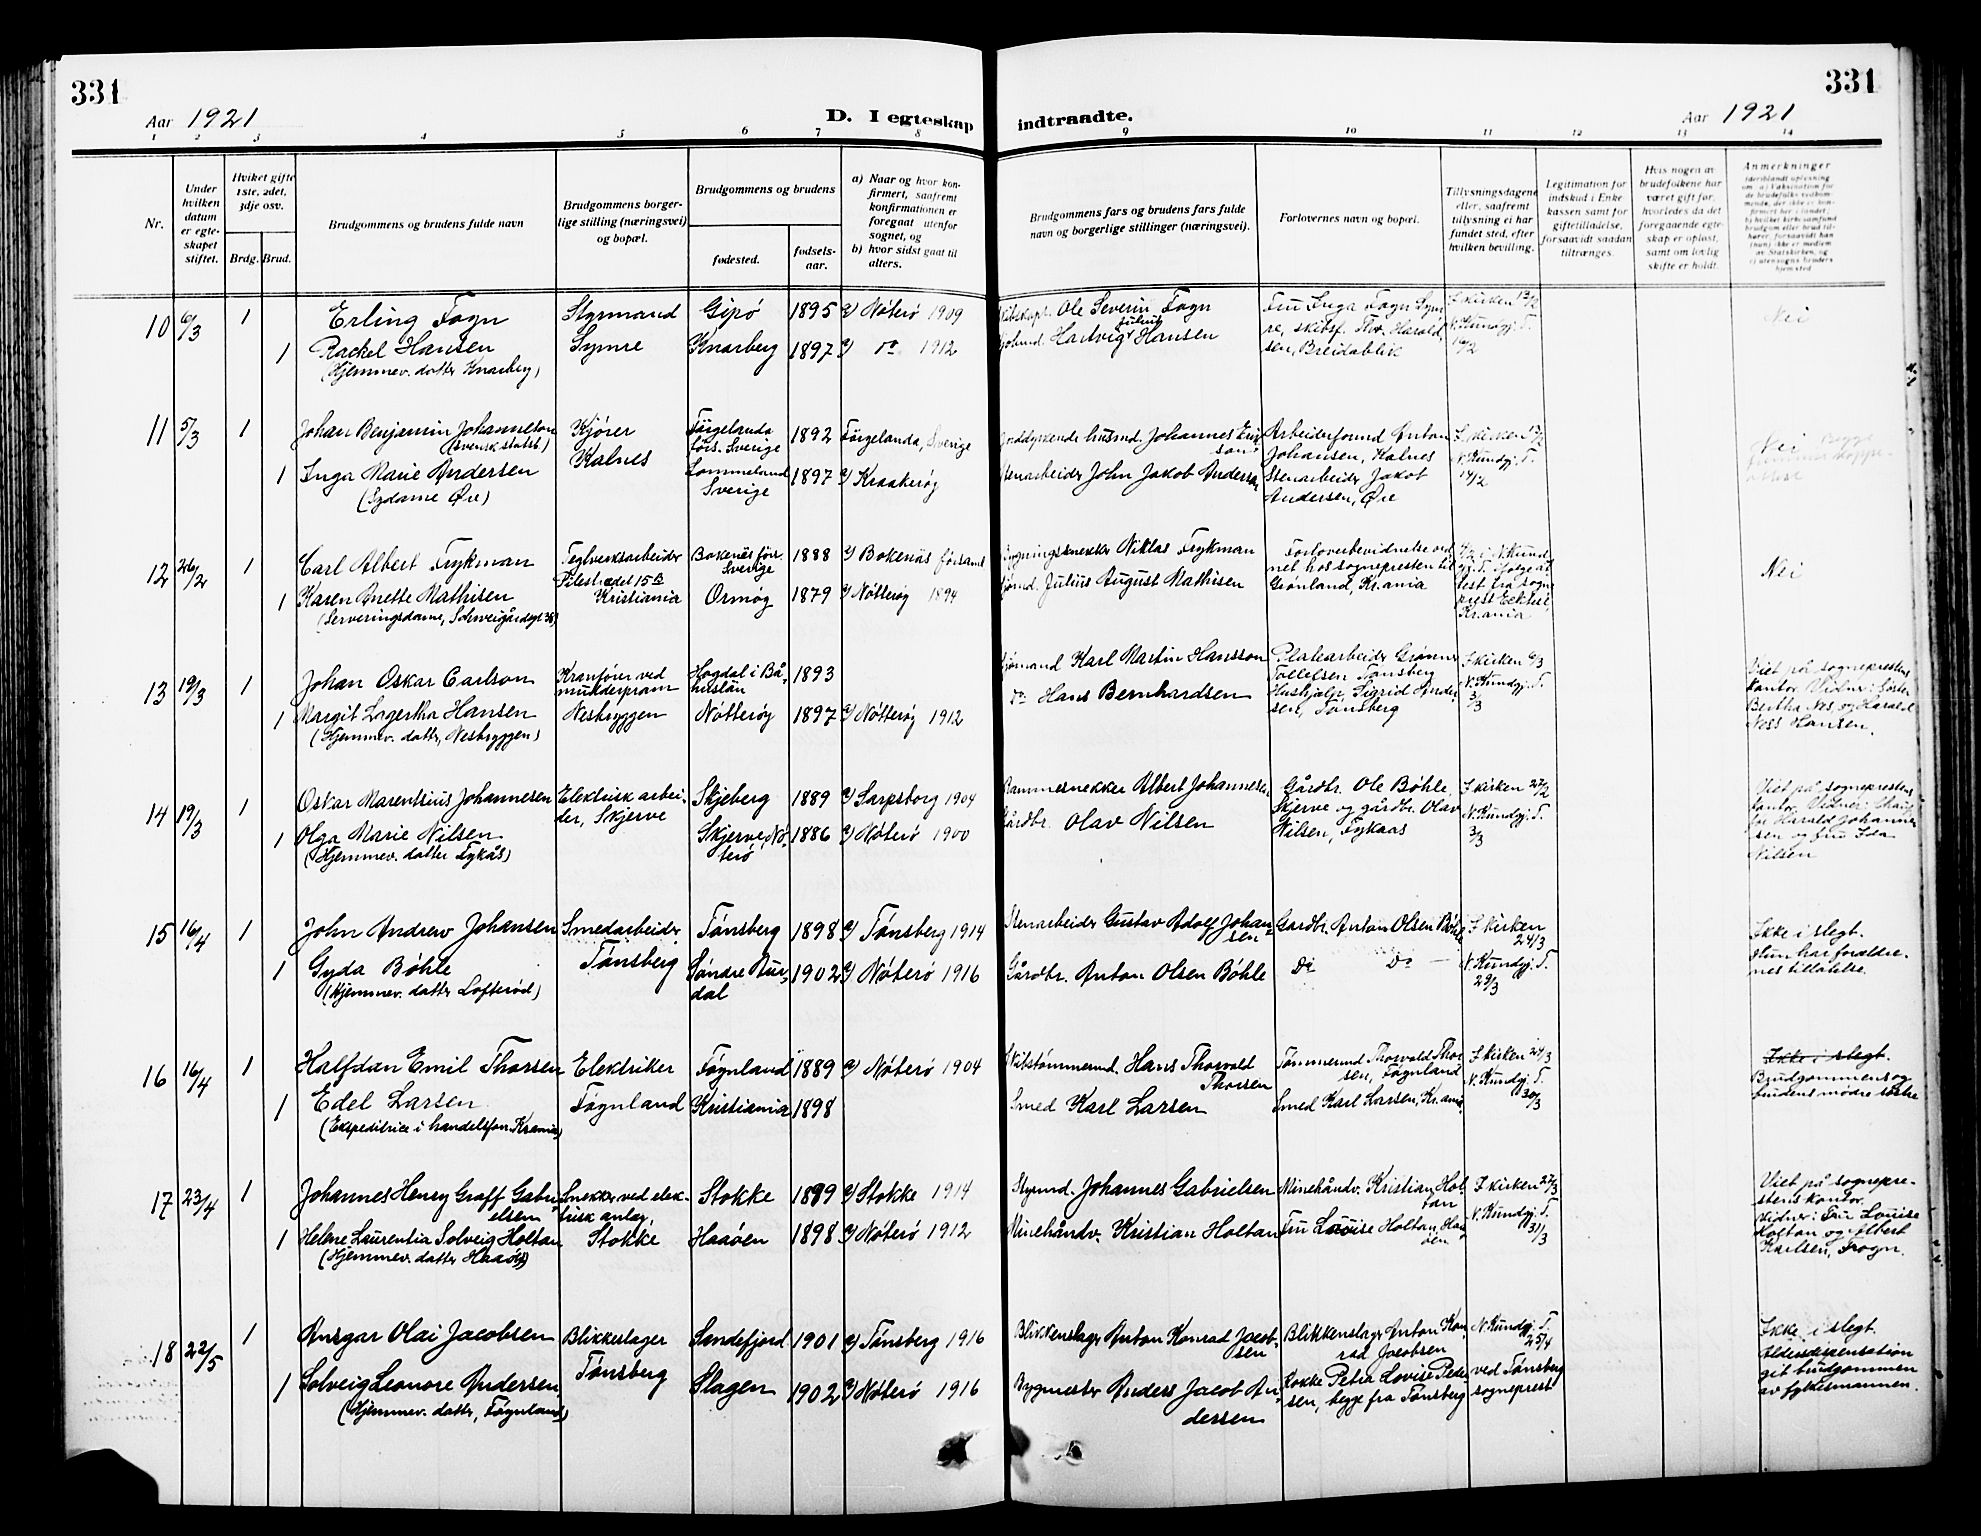 331
331
Aar 1921
D. I egteskap
indtraadte.
Aar 1921
1 2 3 4 5 6 7 8
9 10 11 12 13 14
Nr.
Under hvilken datum er egteskapet stiftet.
Hviket gifte 1ste, 2det, 3dje osv.
Brdg. Brud.
Brudgommens og brudens fulde navn
Brudgommens borgerlige stilling (næringsvei) og bopæl.
Brudgommens og brudens
fødested.
fødselsaar.
a) Naar og hvor konfirmert, saafremt konfirmationen er foregaat utenfor sognet, og
b) hvor sidst gaat til alters.
Brudgommens fars og brudens fars fulde navn og borgerlige stillinger (næringsvei).
Forlovernes navn og bopæl.
Tillysningsdagene eller, saafremt tillysning ei har fundet sted, efter hvilken bevilling.
Legitimation for indskud i Enkekassen samt for giftetilladelse, forsaavidt saadan tiltrænges.
Hvis nogen av brudefolkene har været gift før, hvorledes da det foregaaende egteskap er opløst, samt om lovlig skifte er holdt.
Anmerkninger
10 6/3 1 Erling Fogn Styrmand Gipø 1895 a) Nøterø 1909
Ole Severin Fogn
Symre
1 Rackel Hansen Knarberg 1897 a) do 1912
(Hjemmev. datter Knarberg)
Hartvig Julius Hansen
Fru Inga Fogn Symre, skibsf. Thv. Haraldsen, Breidablik
I kirken 13/2
N. Kundgj. T.
Nei
11 5/3 1 Johan Benjamin Johannesson Kjører Färgelanda förs. Sverige 1892 Färgelanda, Sverige
(svensk statsb.)
Kalnes
1 Inga Marie Andersen Lommeland Sverige 1897 a) Kraakerøy
(Sydame Øre)
Jorddyrkende husmd. Johannes Erikson
Stenarbeider John Jakob Anderson
Arbeiderformd Anton Johansen, Kalnes
Stenarbeider Jakob Andersen, Øre
I kirken 13/2
N. Kundgj. T.
Nei
12 26/2 1 Carl Albert Frykman Teglverksarbeider Bokenäs förs. Sverige 1888 a) Bokenäs församl.
Pilestrædet 15 B
Kristiania
1 Karen Anette Mathisen Ormøy 1879 a) Nøtterøy 1894
(Serveringsdame, Schweigårdsgt 38)
Bygningssnekker Niklas Frykman
Sjømd. Julius August Mathisen
Forloverbevidnelse ved
nel hos sognepresten til
Grønland, Kr.ania
Nei
13 19/3 1 Johan Oskar Carlson Kranfører ved mudderpram Hogdal i Båhuslän 1893
Nesbryggen
1 Margit Lagertha Hansen Nøtterøy 1897 a) Nøtterøy 1912
(Hjemmev. datter, Nesbryggen)
Sjømand Karl Martin Hansson
do Hans Bernhardsen
Platearbeider Grønner Tollefsen Tønsberg
Hushjælp Sigrid Andersen, Tønsberg
I kirken 6/3
N. Kundgj. T.
3/3
Viet på sogneprestens kontor. Vidner: Søster Bertha Nes og Harald Ness Hansen.
14 19/3 1 Oskar Marentsius Johannesen Elektrisk arbeider, Skjerve Skjeberg 1889 a) Sarpsborg 1904
1 Olga Marie Nilsen Skjerve, Nøterø 1886 a) Nøterø 1900
(Hjemmev. datter Fykås)
Rammesnekker Albert Johannesen
Gårdbr. Olav Nilsen
Gårdbr. Ole Bøhle, Skjerve og gårdbr. Olav Nilsen, Fykaas
I kirken 27/2
N. Kundgj. T.
3/3
Viet på sogneprestens kontor. Vidner:
Harald Johannesen og fru Ida Nilsen
15 16/4 1 John Andrew Johansen Smedarbeider Tønsberg 1898 a) Tønsberg 1914
Tønsberg
1 Gyda Bøhle Søndre Aurdal 1902 a) Nøterø 1916
(Hjemmev. datter Lofterød)
Stenarbeider Gustav Adolf Johansen
Gårdbr. Anton Olsen Bøhle
Gårdbr. Anton Olsen Bøhle
Do Do
I kirken 24/3
N. Kundgj. T.
29/3
Ikke i slegt.
Hun har forældrenes tillatelse.
16 16/4 1 Halfdan Emil Thorsen Elektriker Føynland 1889 a) Nøterø 1904
Føynland
1 Edel Larsen Kristiania 1898
(Ekspeditrice i handelsforr. Kr.ania)
Skibstømmermd. Hans Thorvald Thorsen
Smed Karl Larsen
Tømmermd Thorvald Thorsen, Føynland
Smed Karl Larsen, Kr.ania
I kirken 24/3
N. Kundgj. T.
30/3
Ikke i slegt.
Brudgommens og brudens mødre søstre
17 23/4 1 Johannes Henry Graff Gabrielsen Snekker ved elektrisk anlæg, Stokke 1899 a) Stokke 1914
Stokke
1 Helene Laurentia Solveig Holtan Haaøen 1898 a) Nøterø 1912
(Hjemmev. datter Haaøen)
Styrmd. Johannes Gabrielsen
Minehåndv. Kristian Holtan
Minehåndv. Kristian Holtan
Fru Louise Holtan, Haaøen
I kirken 27/3
N. Kundgj. T.
31/3
Viet på sogneprestens kontor.
Vidner: Fru Louise Holtan og Albert Karlsen, Frogn.
18 22/5 1 Ansgar Olai Jacobsen Blikkeslager Sandefjord 1901 a) Tønsberg 1916
Tønsberg
1 Solveig Leonore Andersen Slagen 1902 a) Nøterø 1916
(Hjemmev. datter, Føynland)
Blikkenslager Anton Konrad Jacobsen
Bygmester Anders Jacob Andersen
Blikkenslager Anton Konrad Jacobsen
Kokke Petra Lovise Pedersen, begge fra Tønsberg
N. Kundgj. T.
25/4
ved Tønsberg sogneprest
Ikke i slegt.
Aldersdispensation
git brudgommen
av fylkesmannen.